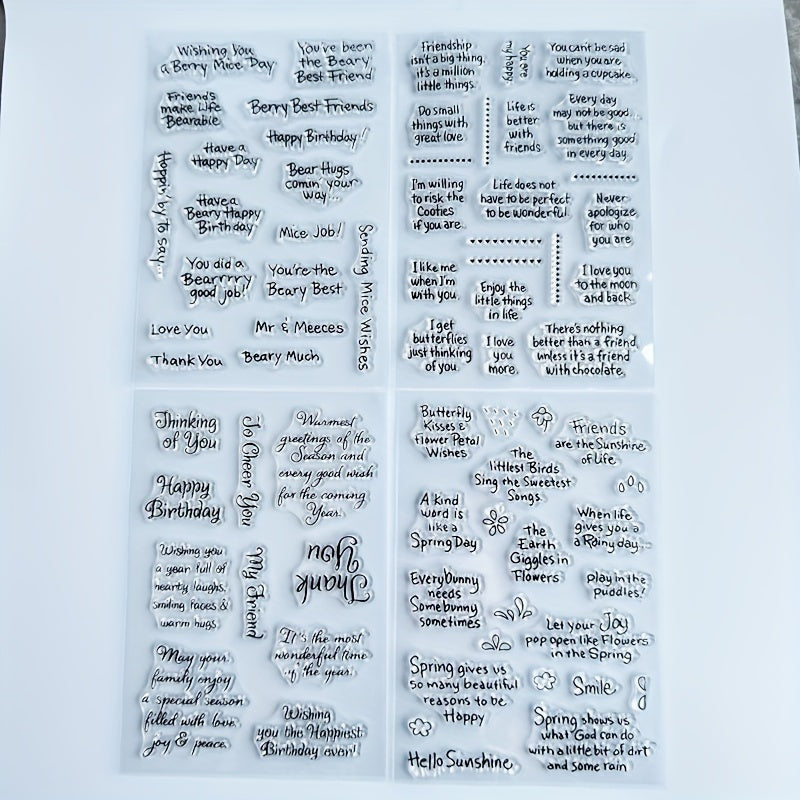 Wishing You
a Berry Mice Day
You've been
the Beary
Best Friend
Friends
make Life
Bearable
Berry Best Friends
Happy Birthday!
Have a
Happy Day
Bear Hugs
comin' your
way...
Hoppin' by to say...
Have a
Beary Happy
Birthday
Mice Job!
Sending Mice Wishes
You did a
Bearrrry
good job!
You're the
Beary Best
Love You
Mr & Meeces
Thank You
Beary Much
Friendship
isn't a big thing,
it's a million
little things.
You are
my happy.
You can't be sad
when you are
holding a cupcake.
Do small
things with
great love.
Life is
better
with
friends.
Every day
may not be good...
but there is
something good
in every day.
I'm willing
to risk the
Cooties
if you are.
Life does not
have to be perfect
to be wonderful.
Never
apologize
for who
you are.
I like me
when I'm
with you.
Enjoy the
little things
in life.
I love you
to the moon
and back.
I get
butterflies
just thinking
of you.
I love
you
more.
There's nothing
better than a friend,
unless it's a friend
with chocolate.
Thinking
of You
To Cheer You
Warmest
greetings of the
Season and
every good wish
for the coming
Year.
Happy
Birthday
Wishing you
a year full of
hearty laughs,
smiling faces &
warm hugs.
My Friend
Thank
You
It's the most
wonderful time
of the year.
May your
family enjoy
a special season
filled with love,
joy & peace.
Wishing
you the Happiest
Birthday ever!
Butterfly
Kisses &
Flower Petal
Wishes
Friends
are the Sunshine
of Life
The
littlest Birds
Sing the Sweetest
Songs.
A kind
word is
like a
Spring Day
The
Earth
Giggles in
Flowers
When life
gives you a
a Rainy day...
Play in the
puddles!
Everybunny
needs
Somebunny
sometimes
Let your Joy
pop open like Flowers
in the Spring
Spring gives us
so many beautiful
reasons to be
Happy
Smile
Spring shows us
what God can do
with a little bit of dirt
and some rain
Hello Sunshine